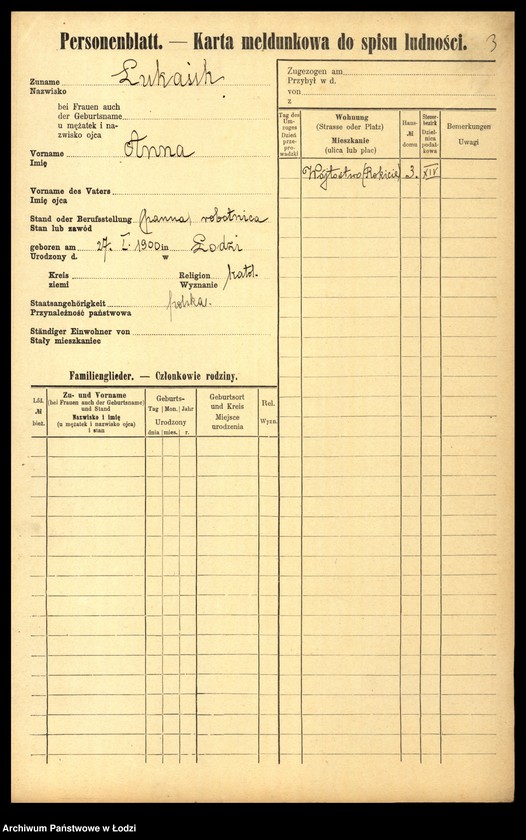 Personenblatt. — Karta meldunkowa do spisu ludności. 3
Zuname Łukasik
Nazwisko
bei Frauen auch
der Geburtsname
u mężatek i na-
zwisko ojca
Vorname Anna
Imię
Vorname des Vaters
Imię ojca
Stand oder Berufsstellung (panna) robotnica
Stan lub zawód
geboren am 27. I. 1900 in Łodzi
Urodzony d. w
Kreis Religion katol.
ziemi Wyznanie
Staatsangehörigkeit polska.
Przynależność państwowa
Ständiger Einwohner von
Stały mieszkaniec
Zugezogen am
Przybył w d.
von
z
Tag des
Um-
zuges
Dzień
prze-
prowadzki
Wohnung
(Strasse oder Platz)
Mieszkanie
(ulica lub plac)
Haus-
№
domu
Steuer-
bezirk
Dziel-
nica
podat-
kowa
Bemerkungen
Uwagi
Wójtostwo (Rokicie) 3. XIV
Familienglieder. — Członkowie rodziny.
Lfd.
№
bież.
Zu- und Vorname
(bei Frauen auch der Geburtsname)
und Stand
Nazwisko i imię
(u mężatek i nazwisko ojca)
i stan
Geburts-
Tag Mon. Jahr
Urodzony
dnia mies. r.
Geburtsort
und Kreis
Miejsce
urodzenia
Rel.
Wyzn.
Archiwum Państwowe w Łodzi